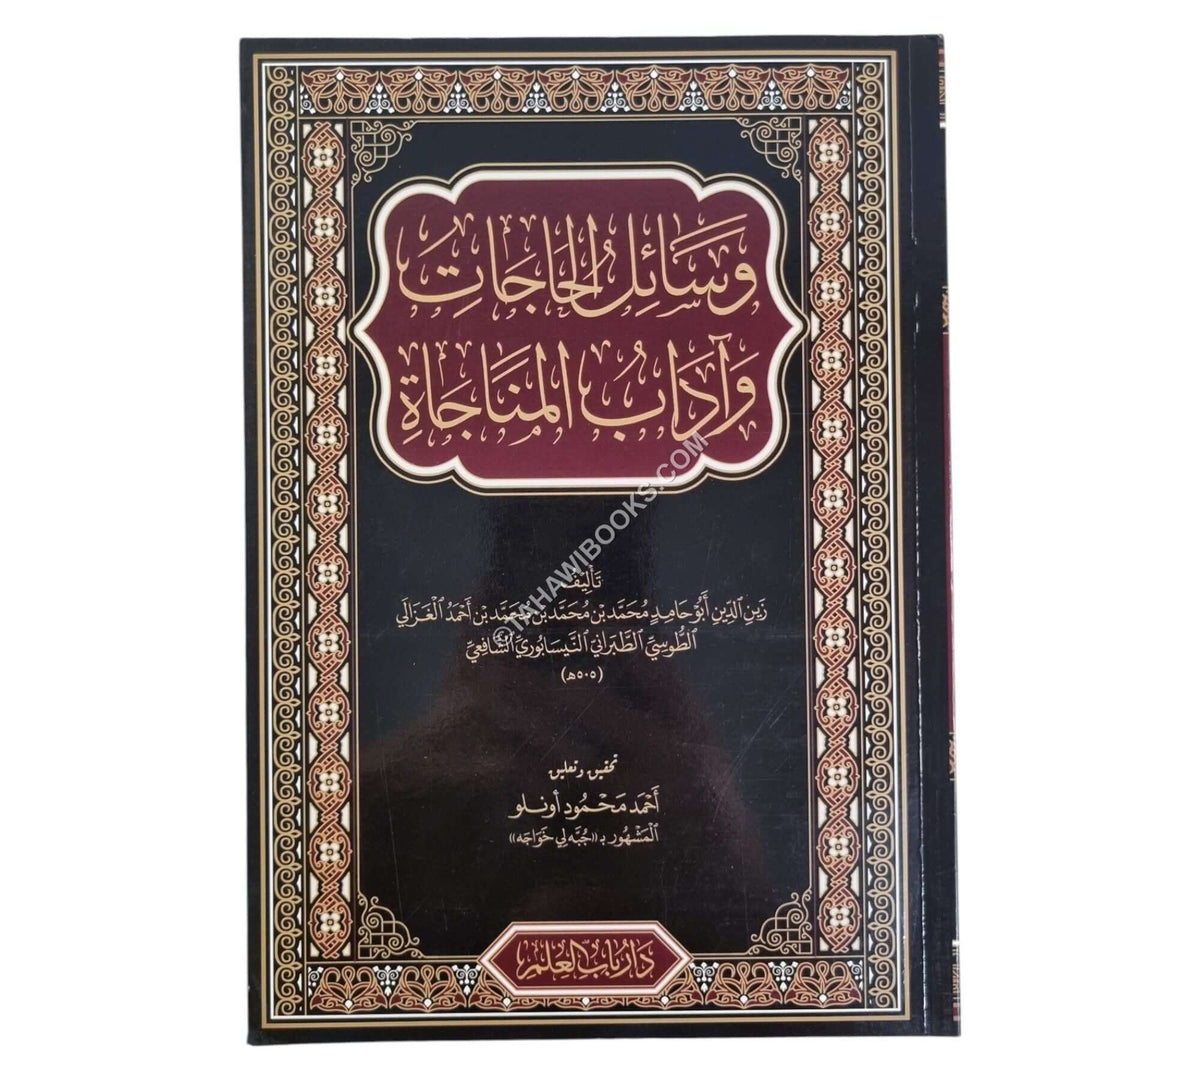 وَسَائِلُ الحَاجَاتِ
وَآدَابُ المُنَاجَاةِ
تَأْلِيْفُ
زَيْنِ الدِّينِ أَبُو حَامِدٍ مُحَمَّد بن مُحَمَّد بن مُحَمَّد بن أَحْمَدُ الْغَزَالِي
الطُّوسِيِّ الطَّبَرَانِي النَّيسَابُورِيِّ الشَّافِعِيِّ
(٥٠٥هـ)
تحقيق وتعليق
أَحْمَد مَحْمُود أونلو
الْمَشْهُور بـ «جُبَّه لي خَوَاجَه»
دَارُ بَابِ الْعِلْمِ
TAHAWIBOOKS.COM